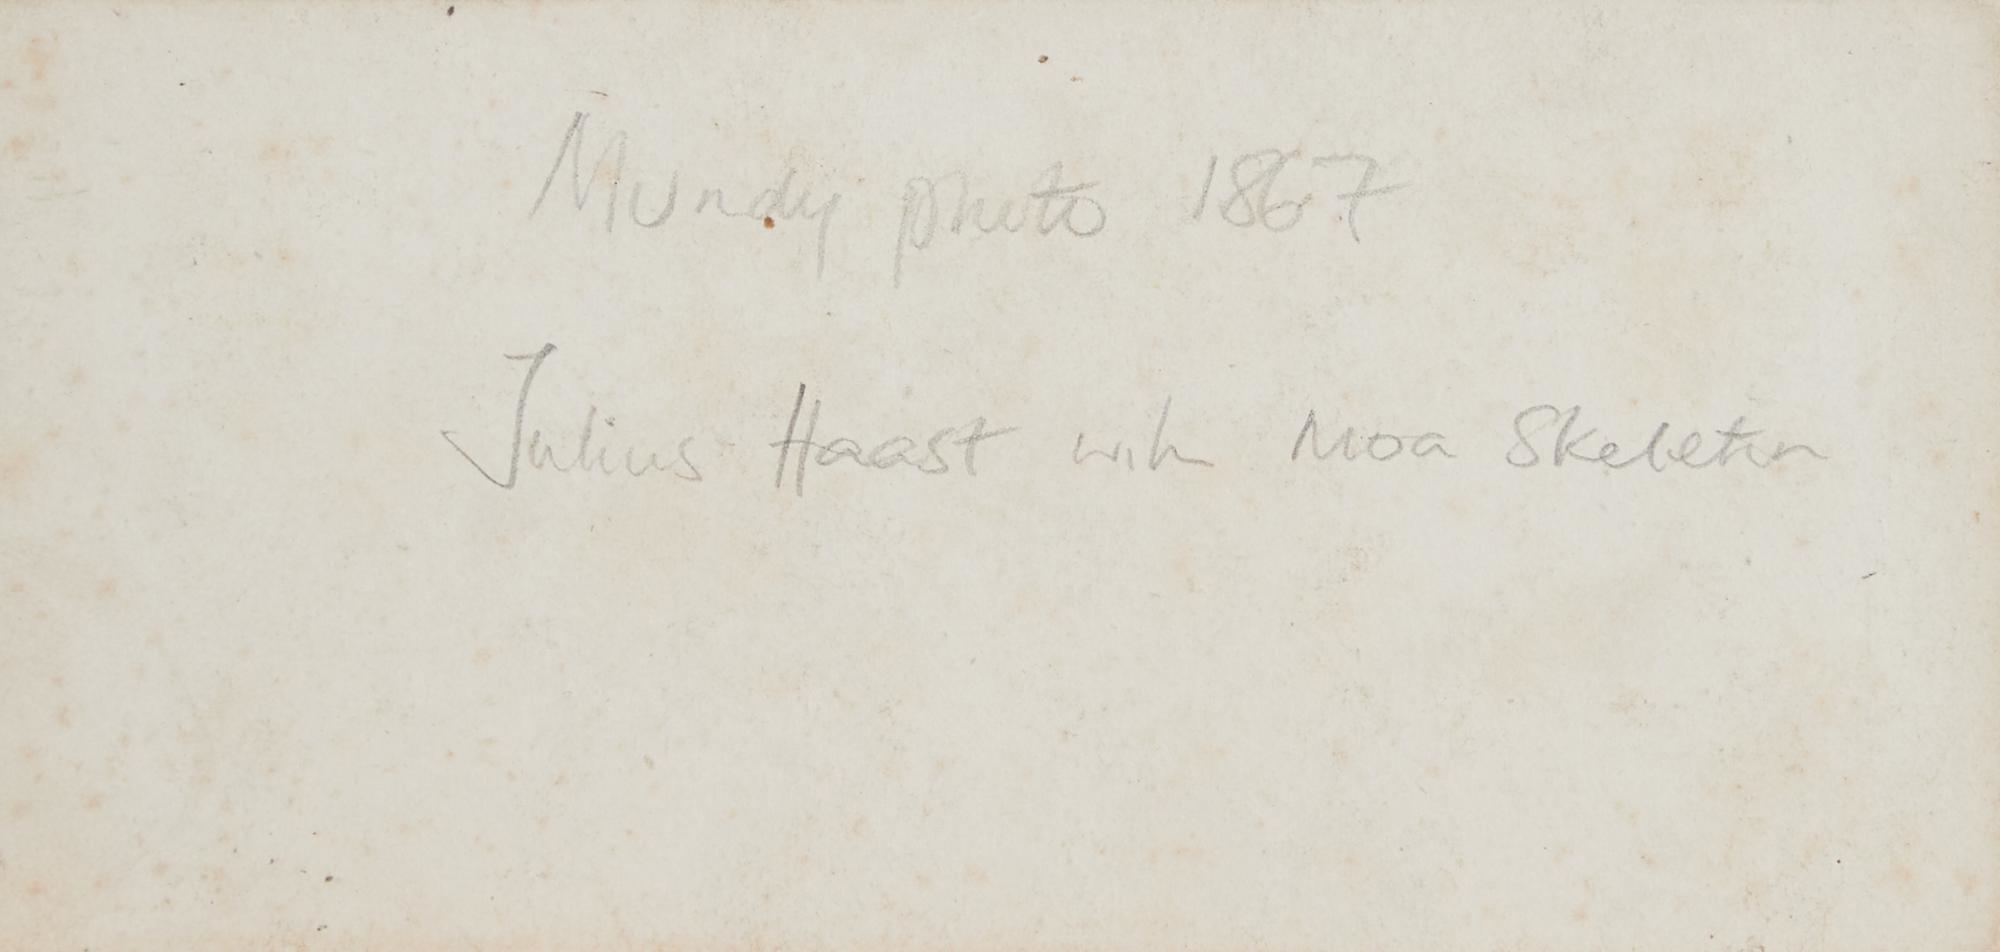 Mundy photo 1867
Julius Haast with Moa Skeleton